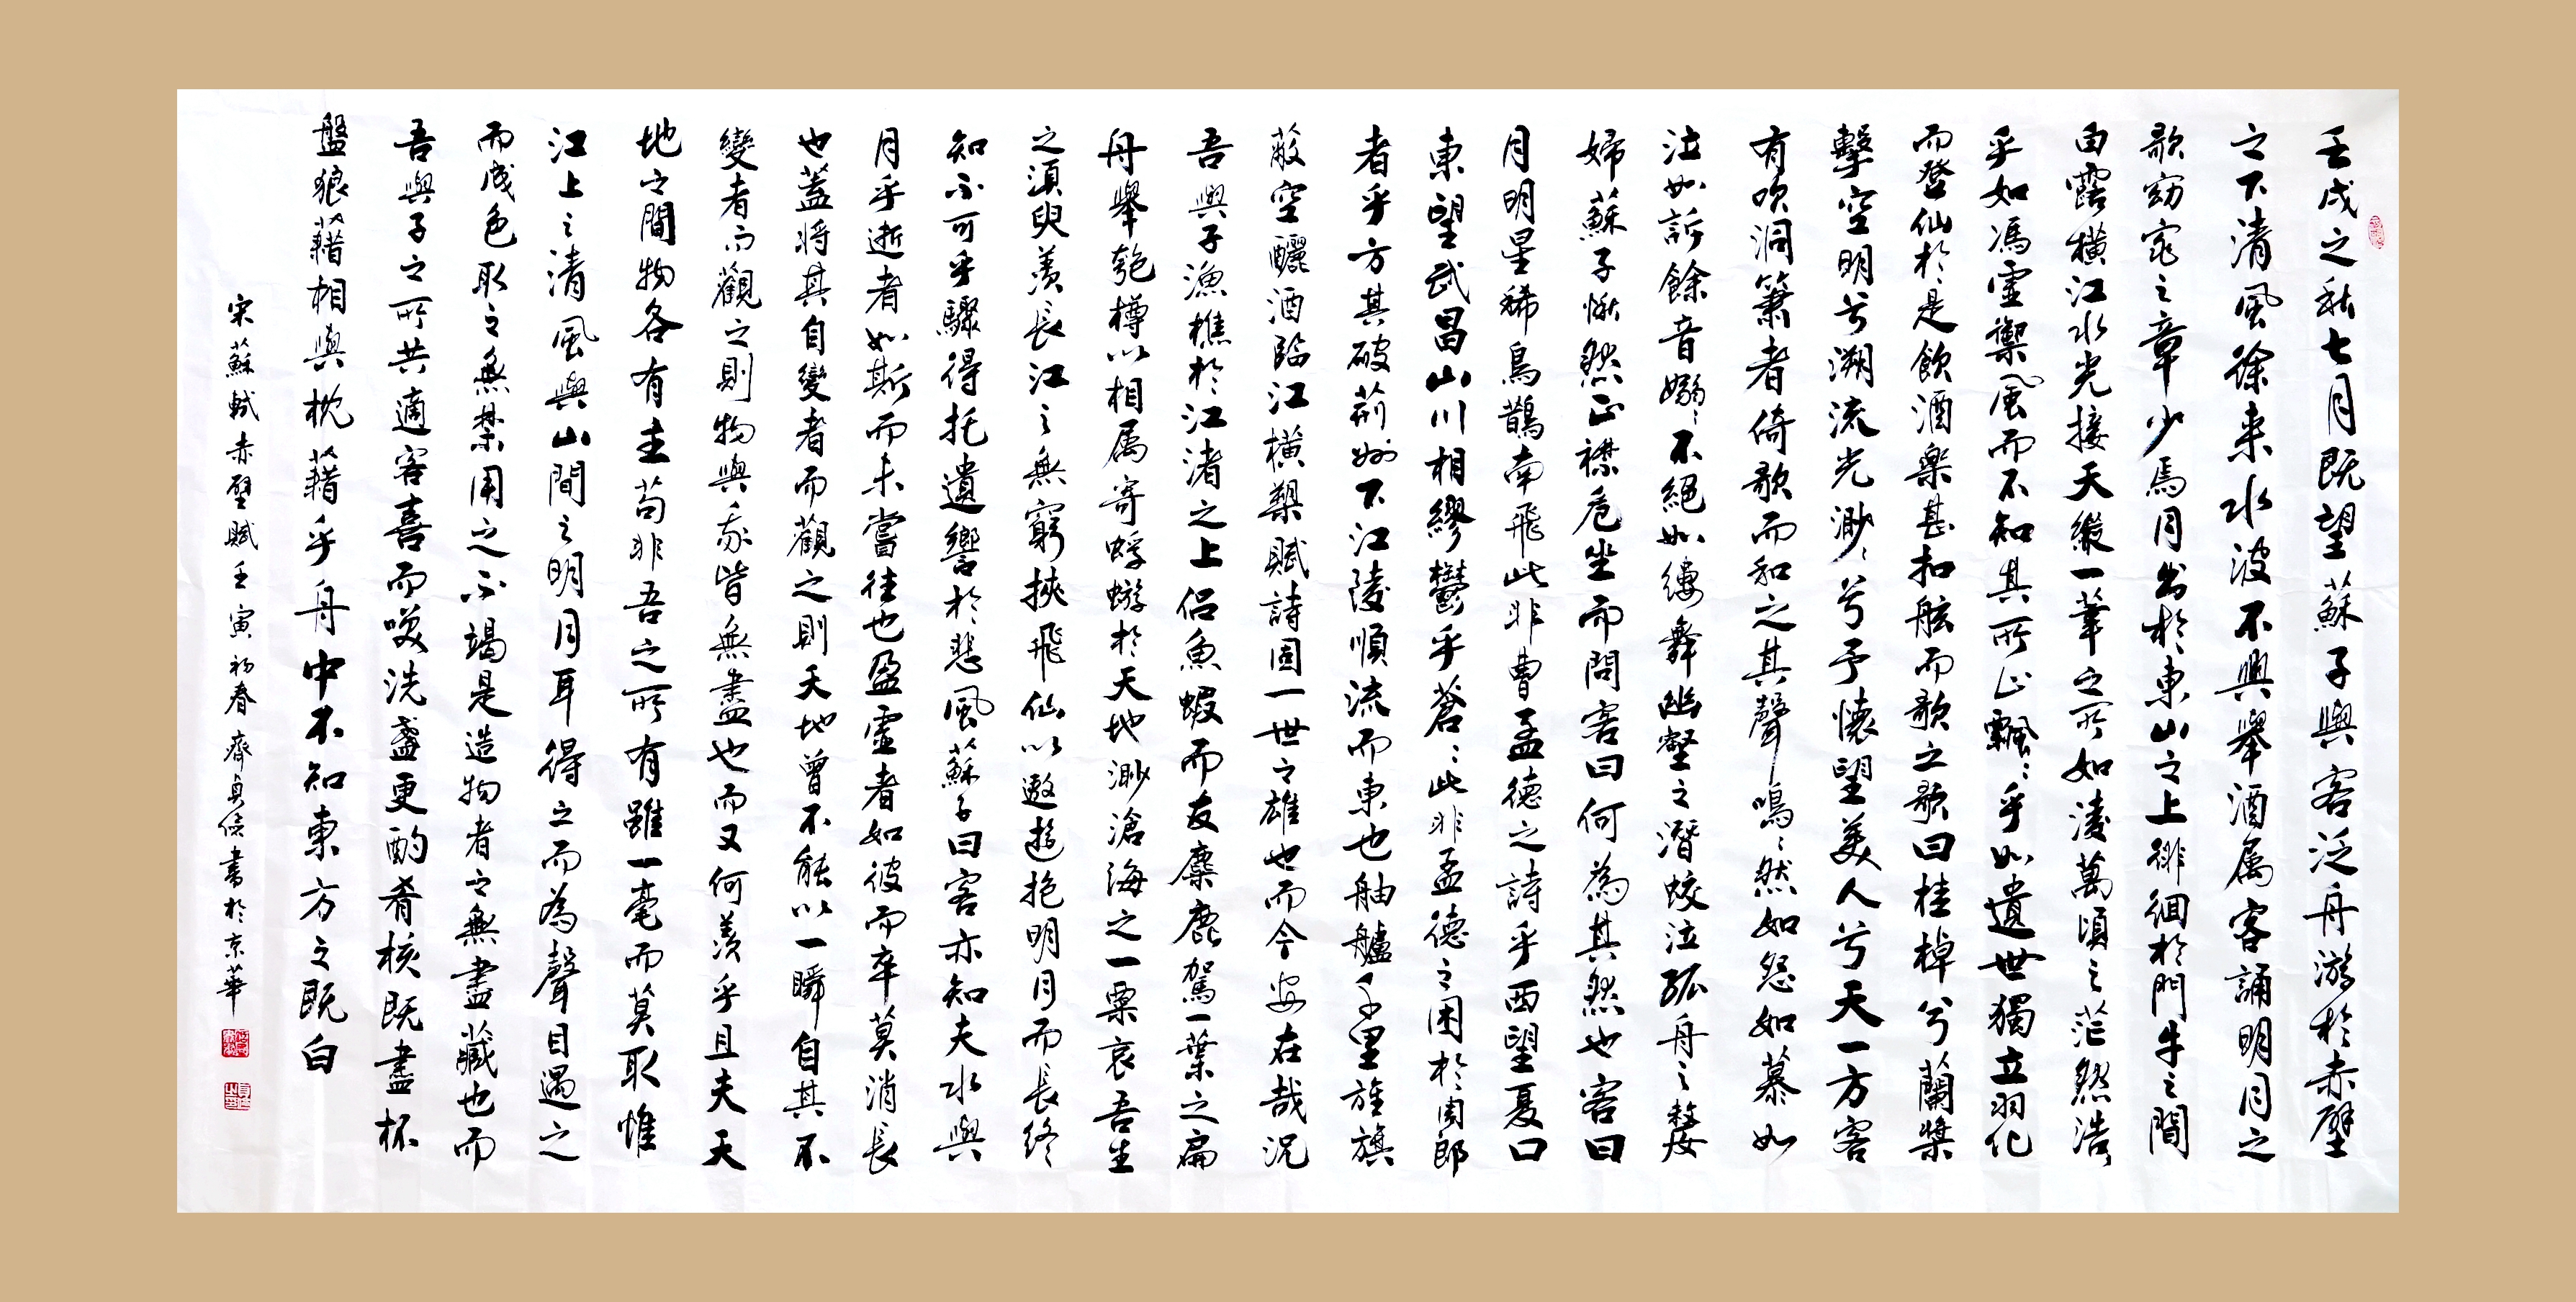 壬戌之秋七月既望蘇子與客泛舟游於赤壁
之下清風徐来水波不興舉酒属客誦明月之
歌窈窕之章少焉月出於東山之上徘徊於鬥牛之間
白露横江水光接天縱一葦之所如淩萬頃之茫然浩〻
乎如馮虚禦風而不知其所止飄〻乎如遺世獨立羽化
而登仙於是飲酒樂甚扣舷而歌之歌曰桂棹兮蘭槳
擊空明兮溯流光渺〻兮予懷望美人兮天一方客
有吹洞簫者倚歌而和之其聲嗚〻然如怨如慕如
泣如訴餘音嫋〻不絕如縷舞幽壑之潛蛟泣孤舟之嫠
婦蘇子愀然正襟危坐而問客曰何為其然也客曰
月明星稀烏鵲南飛此非曹孟德之詩乎西望夏口
東望武昌山川相繆鬱乎蒼〻此非孟德之困於周郎
者乎方其破荊州下江陵順流而東也舳艫千里旌旗
蔽空釃酒臨江横槊賦詩固一世之雄也而今安在哉况
吾與子漁樵於江渚之上侣魚蝦而友麋鹿駕一葉之扁
舟舉匏樽以相属寄蜉蝣於天地渺滄海之一粟哀吾生
之須臾羨長江之無窮挾飛仙以遨遊抱明月而長終
知不可乎驟得托遺響於悲風蘇子曰客亦知夫水與
月乎逝者如斯而未嘗往也盈虚者如彼而卒莫消長
也蓋將其自變者而觀之則天地曾不能以一瞬自其不
變者而觀之則物與我皆無盡也而又何羨乎且夫天
地之間物各有主苟非吾之所有雖一毫而莫取惟
江上之清風與山間之明月耳得之而為聲目遇之
而成色取之無禁用之不竭是造物者之無盡藏也而
吾與子之所共適客喜而笑洗盞更酌肴核既盡杯
盤狼藉相與枕藉乎舟中不知東方之既白
宋蘇軾赤壁賦壬寅初春齊貞信書於京華